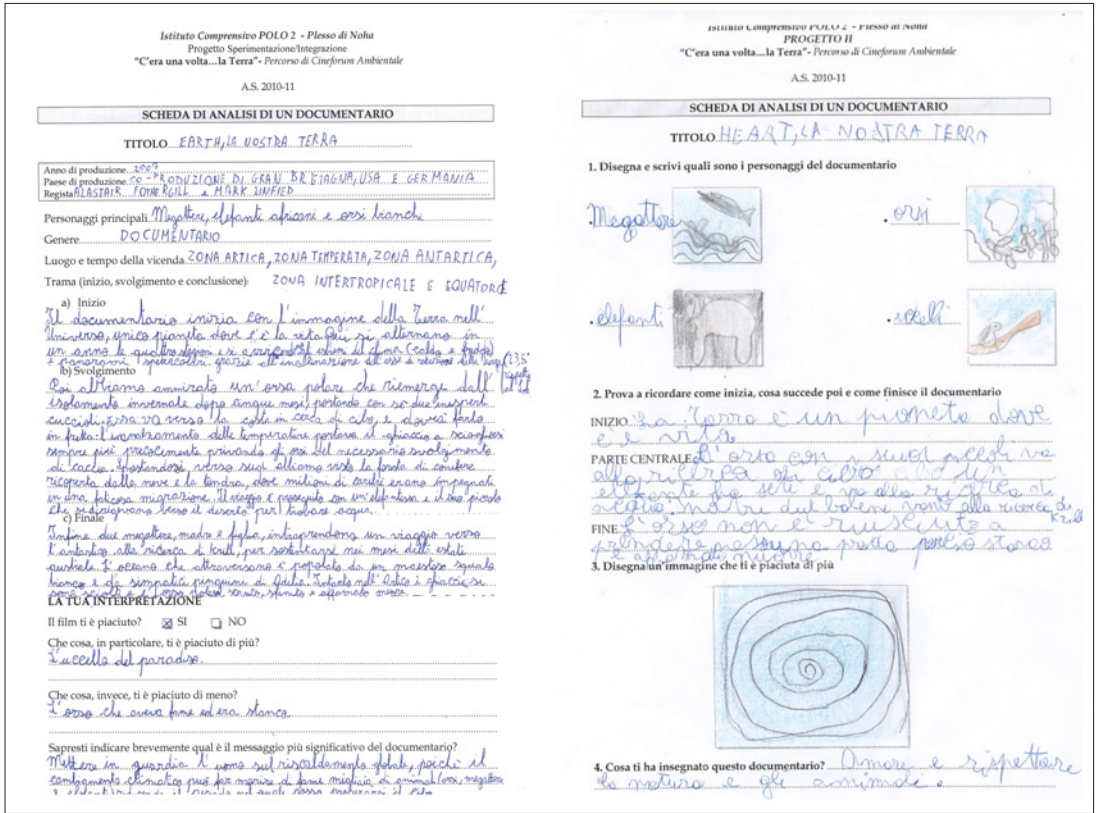 Istituto Comprensivo POLO 2 - Plesso di Noha
Progetto Sperimentazione/Integrazione
"C'era una volta...la Terra"- Percorso di Cineforum Ambientale
A.S. 2010-11
SCHEDA DI ANALISI DI UN DOCUMENTARIO
TITOLO EARTH, LA NOSTRA TERRA
Anno di produzione 2007
Paese di produzione CO-PRODUZIONE DI GRAN BRETAGNA, USA E GERMANIA
Regista ALASTAIR FOTHERGILL e MARK LINFIED
Personaggi principali Megattere, elefanti africani e orsi bianchi
Genere DOCUMENTARIO
Luogo e tempo della vicenda ZONA ARTICA, ZONA TEMPERATA, ZONA ANTARTICA,
Trama (inizio, svolgimento e conclusione): ZONA INTERTROPICALE E EQUATORE
a) Inizio
Il documentario inizia con l'immagine della Terra nell'
Universo, unico pianeta dove c'è la vita. Qui si alternano in
un anno le quattro stagioni e si
e panorami spettacolari grazie all'inclinazione dell'asse di rotazione della 23,5°
b) Svolgimento
Poi abbiamo ammirato un'orsa polare che riemerge dall'
isolamento invernale dopo cinque mesi, portando con sé due inesperti
cuccioli. Essa va verso la coste in cerca di cibo, e dovrà farlo
in fretta: l'innalzamento delle temperature porterà il ghiaccio a sciogliersi
sempre più precocemente privando gli orsi del necessario svolgimento
di caccia. Spostandosi, verso sud abbiamo visto la foresta di conifere
ricoperta dalla neve e la tundra, dove milioni di caribù erano impegnati
in una faticosa migrazione. Il viaggio è proseguito con un'elefantessa e il suo piccolo
che si dirigevano verso il deserto per trovare acqua.
c) Finale
Infine due megattere, madre e figlia, intraprendono un viaggio verso
l'antartico alla ricerca di krill, per sostentarsi nei mesi dell'estate
australe. L'oceano che attraversano è popolato da un maestoso squalo
bianco e da simpatici pinguini di Adelia. Intanto nell'Artico i ghiacci si
sono sciolti e l'orso polare stanco, sfinito e affamato muore.
LA TUA INTERPRETAZIONE
Il film ti è piaciuto? SI NO
Che cosa, in particolare, ti è piaciuto di più?
L'uccello del paradiso.
Che cosa, invece, ti è piaciuto di meno?
L'orso che aveva fame ed era stanco.
Sapresti indicare brevemente qual è il messaggio più significativo del documentario?
Mettere in guardia l'uomo sul riscaldamento globale, poiché il
cambiamento climatico può far morire di fame migliaia di animali (orsi, megattere
Istituto Comprensivo POLO 2 - Plesso di Noha
PROGETTO H
"C'era una volta...la Terra"- Percorso di Cineforum Ambientale
A.S. 2010-11
SCHEDA DI ANALISI DI UN DOCUMENTARIO
TITOLO HEART, LA NOSTRA TERRA
1. Disegna e scrivi quali sono i personaggi del documentario
. Megattere . orsi
. elefanti . uccelli
2. Prova a ricordare come inizia, cosa succede poi e come finisce il documentario
INIZIO La Terra è un pianeta dove
c'è vita
PARTE CENTRALE L'orsa con i suoi piccoli va
alla ricerca di cibo un
elefante ha sete e va alla ricerca di
acqua. due balene vanno alla ricerca di
Krill
FINE L'orso non è riuscito a
prendere nessuna preda perciò stanco
e affamato muore
3. Disegna un'immagine che ti è piaciuta di più
4. Cosa ti ha insegnato questo documentario? Amore e rispettare
la natura e gli animali.